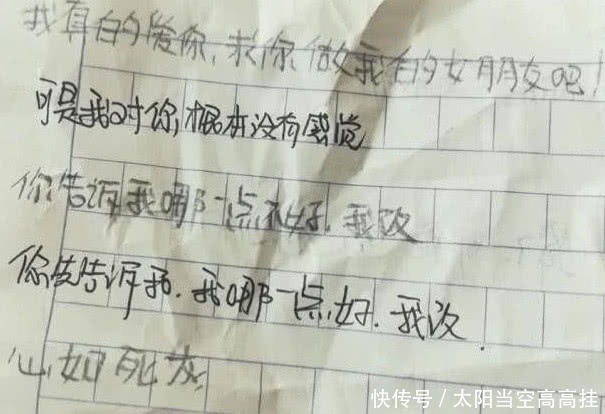 我真的爱你,求你做我的女朋友吧!
可是我对你,根本没有感觉
你告诉我哪一点不好.我改
你先告诉我.我哪一点好.我改.
心如死灰
快传号/太阳当空高高挂